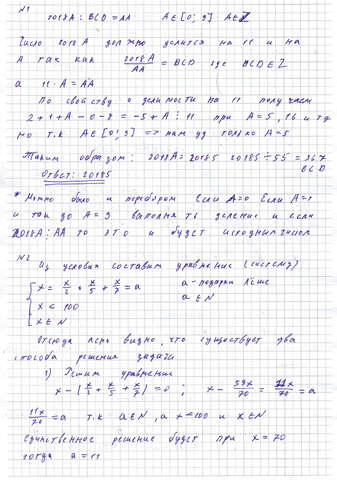 №1
2018A : BCD = AA   A ∈ [0; 9]   A ∈ Z
Число 2018A должно делится на 11 и на
A так как 2018A/AA = BCD где BCD ∈ Z
а 11 · A = AA
По свойству о делимости на 11 получаем
2 + 1 + A - 0 - 8 = -5 + A ⋮ 11 при A = 5, 16 и тд
но т.к A ∈ [0; 9] => нам уд только A = 5
Таким образом: 2018A = 20185   20185 ÷ 55 = 367
BCD
Ответ: 20185
* Можно было и перебором если A=0 Если A=1
и так до A = 9 выполнять деление и если
2018A : AA то это и будет исходным числом
№2
Из условия составим уравнение (систему)
{ x = x/2 + x/5 + x/7 = a   a - подарки Ксше
x < 100   a ∈ N
x ∈ N
Отсюда ясно видно, что существует два
способа решения задачи
1) Решим уравнение
x - (x/2 + x/5 + x/7) = 0 ; x - 59x/70 = 11x/70 = a
11x/70 = a т.к a ∈ N, а x < 100 и x ∈ N
единственное решение будет при x = 70
тогда a = 11